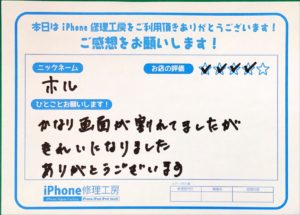 本日は iPhone 修理工房をご利用頂きありがとうございます！
ご感想をお願いします！
ニックネーム
お店の評価
ホル
ひとことお願いします！
かなり画面が割れてましたが
きれいになりました
ありがとうございます
iPhone修理工房